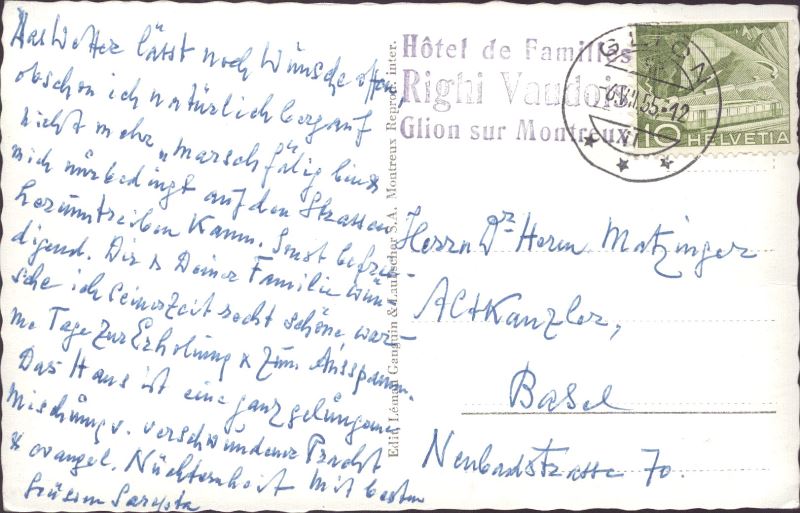 Das Wetter lässt noch Wünsche offen,
obschon ich natürlich bergauf
nicht mehr „marschfähig bin &
mich nur bedingt auf den Strassen
herumtreiben kann. Sonst befrie-
digend. Dir & Deiner Familie wün-
sche ich seinerzeit recht schöne war-
me Tage zur Erholung & zum Ausspann.
Das Haus ist eine ganz gelungene
Mischung v. verschwundener Pracht
& evangel. Nüchternheit Mit besten
Grüssen
Edit. Léman Gauguin & Laubscher S.A. Montreux Reprod. inter.
Hôtel de Familles
Righi Vaudois
Glion sur Montreux
GLION
HELVETIA
10
Herrn Dr Herm Matzinger
Altkanzler,
Basel
Neubadstrasse 70.